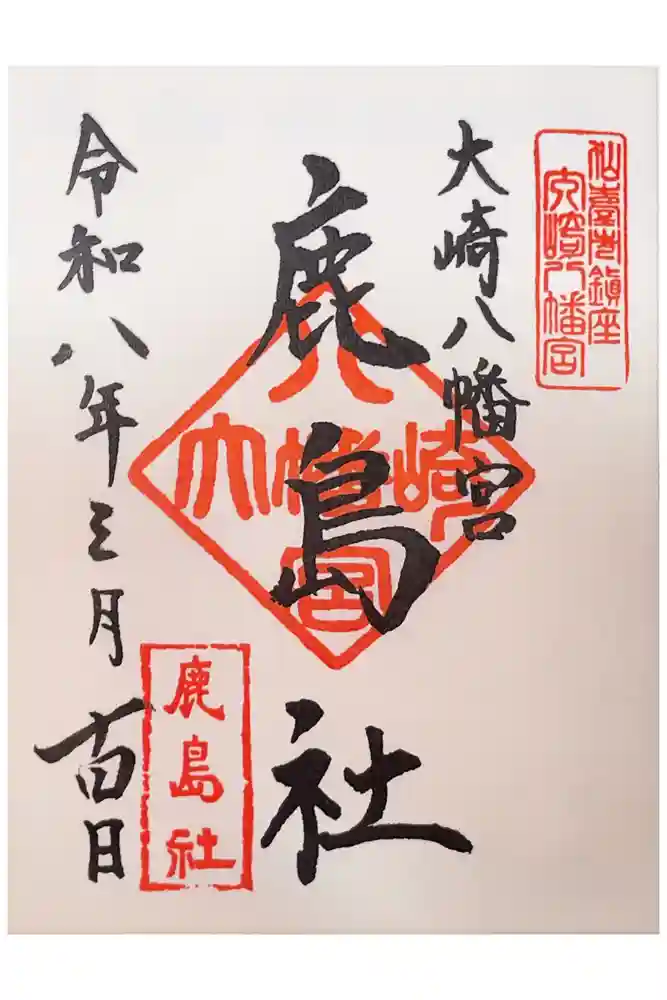 仙臺市鎮座
大崎八幡宮
大崎八幡宮
鹿島社
大崎八幡宮
鹿島社
令和八年三月日